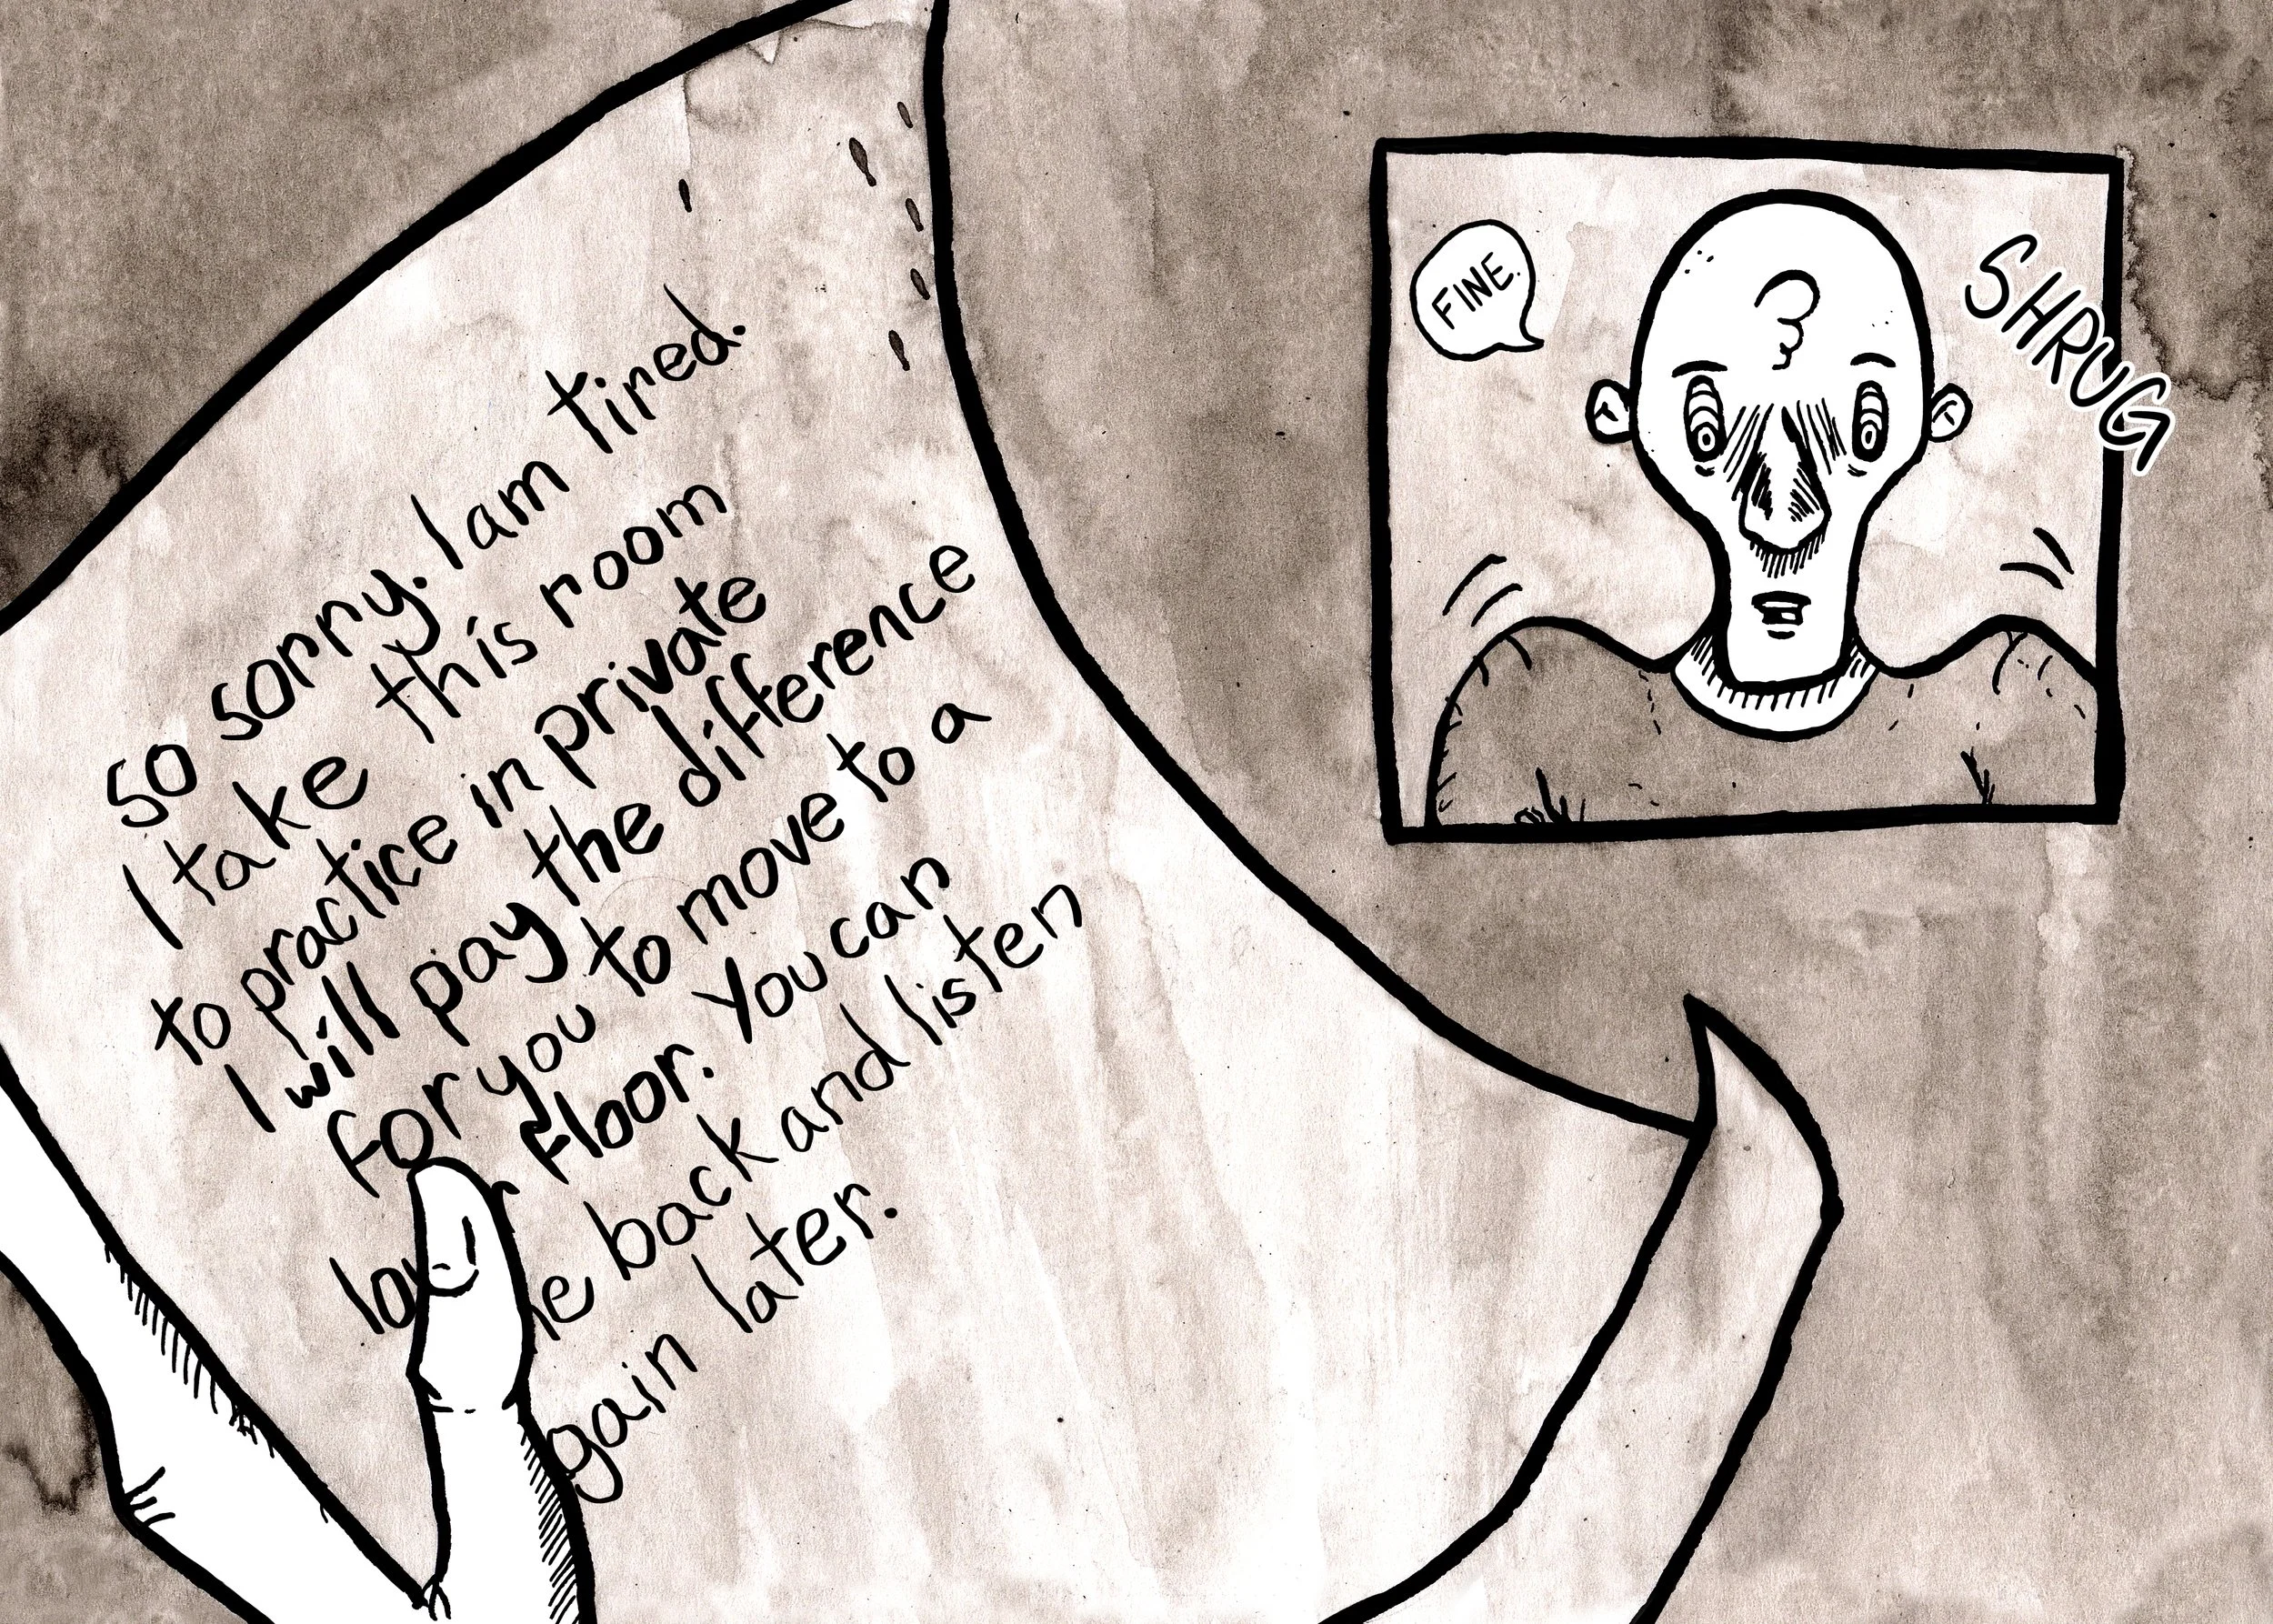 So sorry. I am tired.
I take this room
to practice in private
I will pay the difference
for you to move to a
floor. You can
back and listen
later.
FINE.
SHRUG